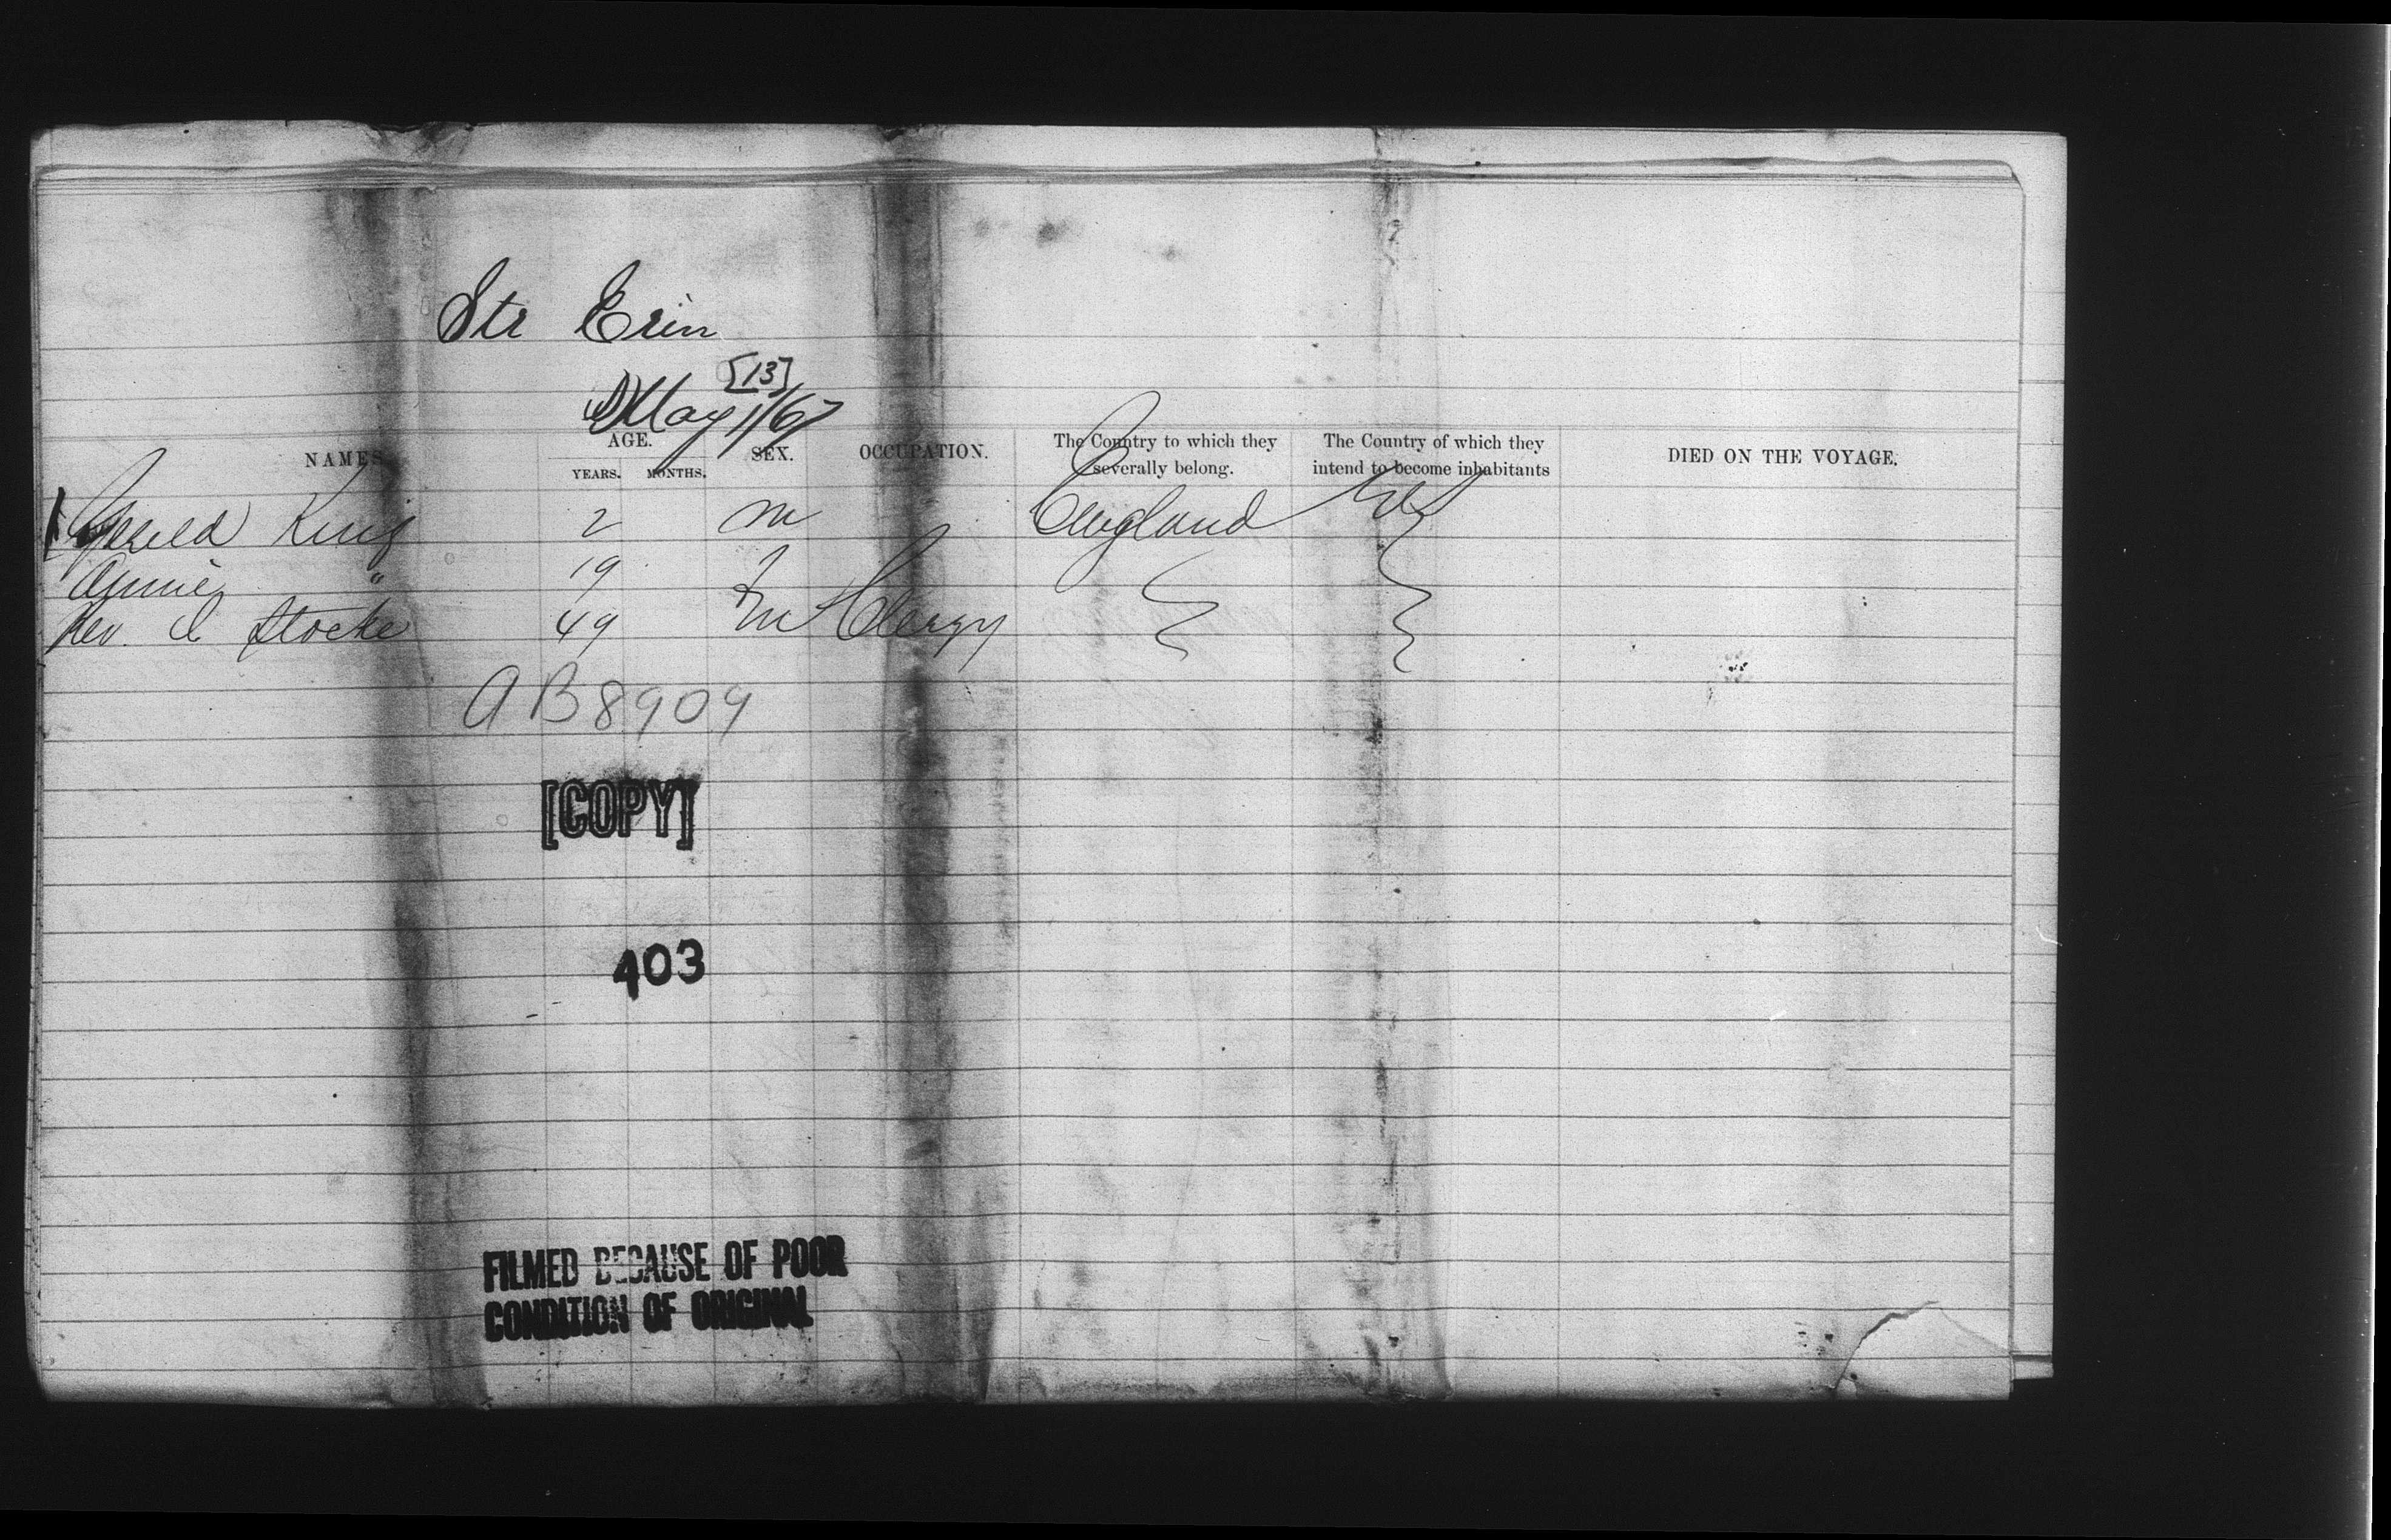 Str Erin
[13]
May 1/67
NAMES AGE. YEARS. MONTHS. SEX. OCCUPATION. The Country to which they severally belong. The Country of which they intend to become inhabitants DIED ON THE VOYAGE.
King 2 m England
Annie " 19 f
Rev. Stocke 49 m Clergy
AB8909
[COPY]
403
FILMED BECAUSE OF POOR
CONDITION OF ORIGINAL